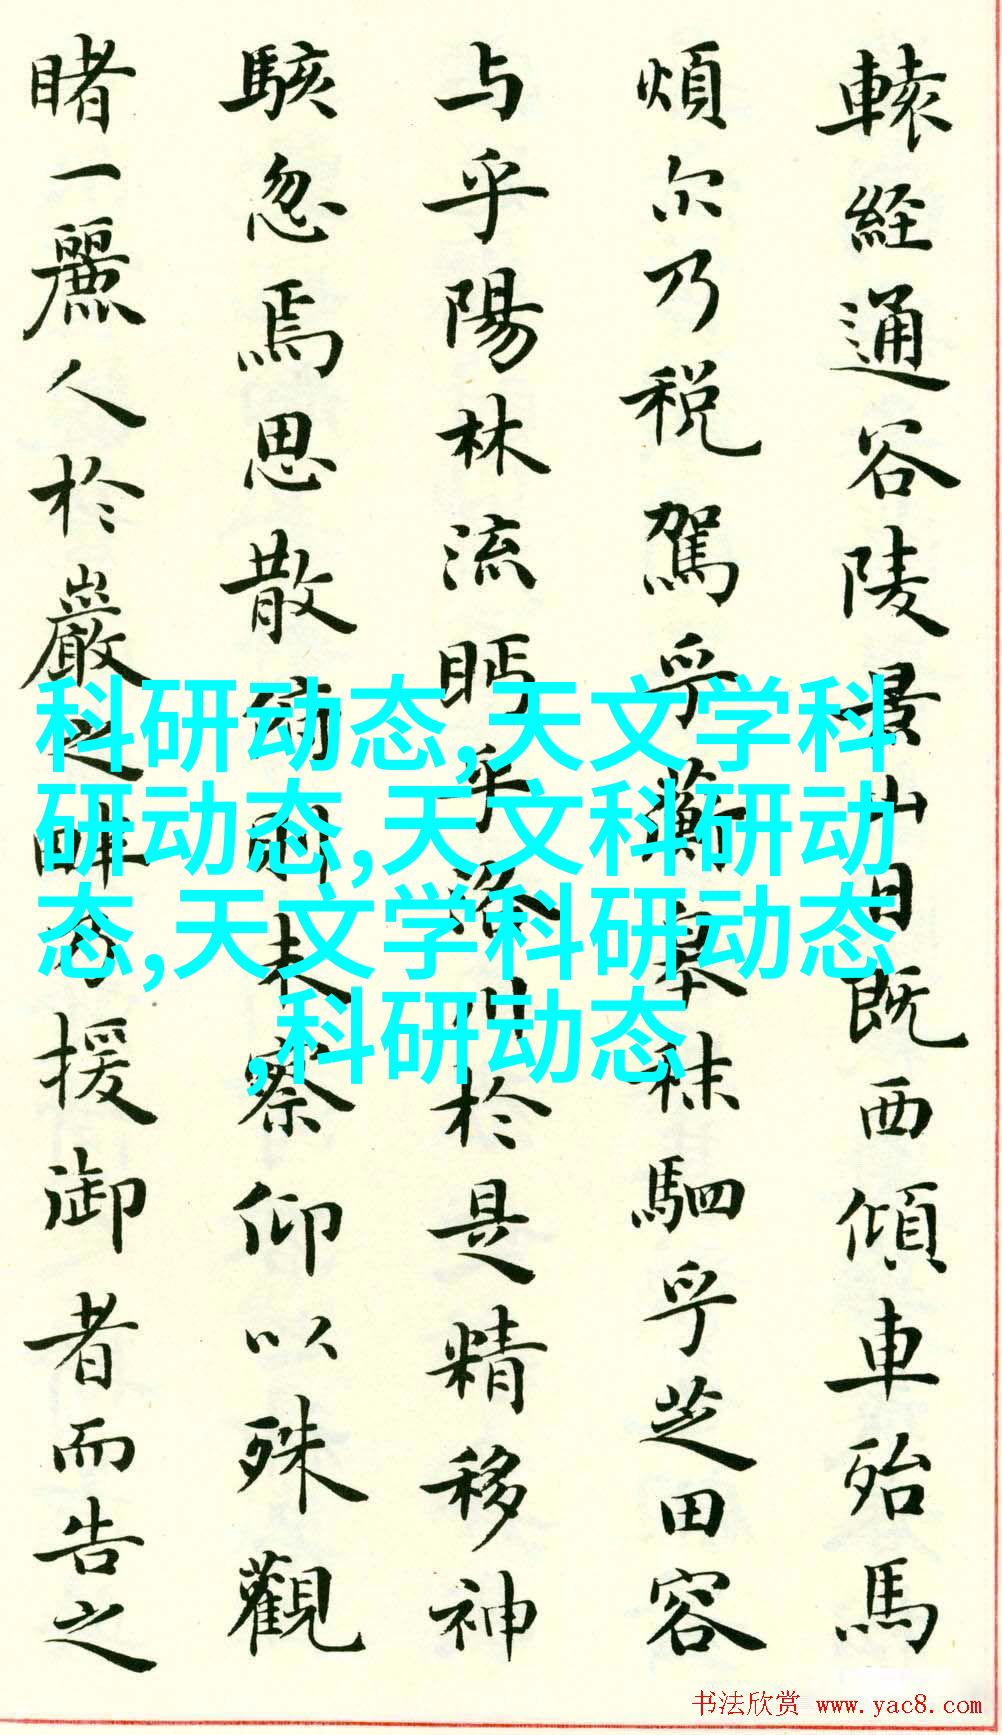 轅經通谷陵景山日既西傾車殆馬
煩尔乃税駕乎蘅皋秣駟乎芝田容
与乎陽林流眄乎洛川於是精移神
駭忽焉思散俯則未察仰以殊觀
睹一麗人於巖之畔乃援御者而告之
科研动态,天文学科
研动态,天文科研动
态,天文学科研动态
,科研动态
书法欣赏 www.yac8.com